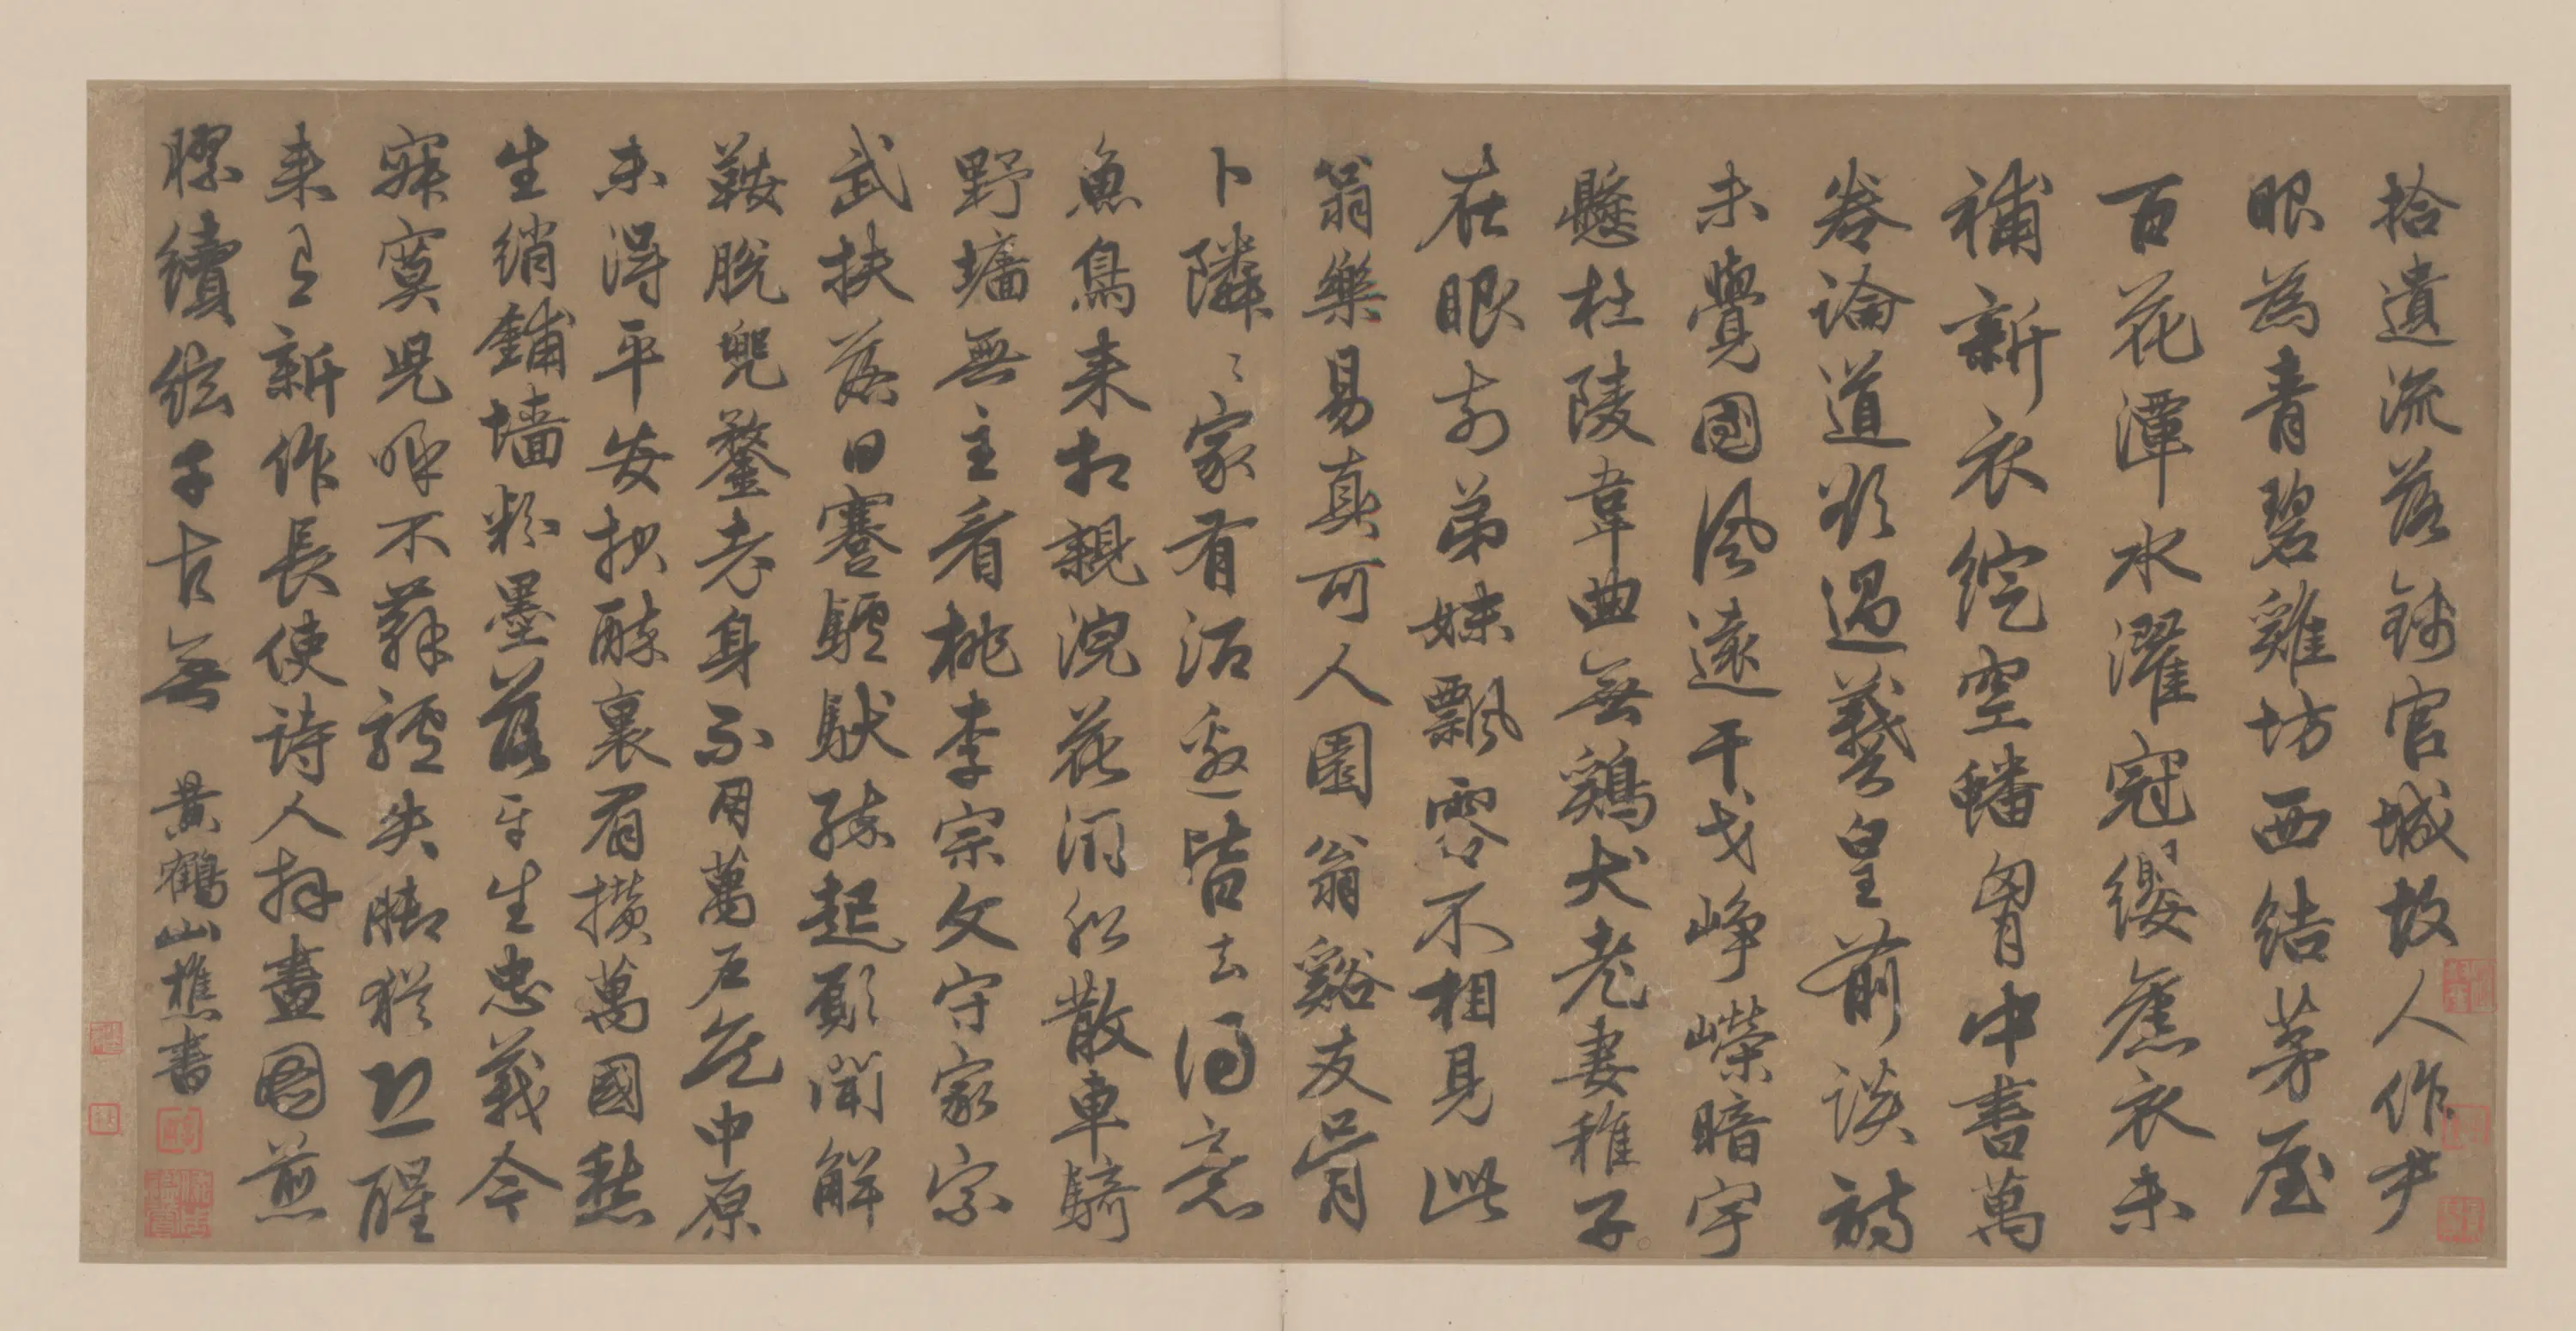 拾遺流落錦官城故人作尹
眼為青碧雞坊西結茅屋
百花潭水濯冠纓舊衣未
補新衣綻空蟠胷中書萬
卷論道欲過羲皇前談詩
未覺國風遠干戈崢嶸暗宇
懸杜陵韋曲無雞犬老妻稚子
在眼前弟妹飄零不相見此
翁樂易真可人園翁谿友肯
卜隣隣家有酒邀皆去得意
魚鳥来相親浣花酒船散車騎
野墻無主看桃李宗文守家宗
武扶落日蹇驢馱醉起願聞解
鞍脫兜鍪老身不用萬戶侯中原
未得平安報醉裏眉攢萬國愁
生綃鋪墻粉墨落平生忠義今
寂寞兒呼不蘇驢失脚猶恐醒
来有新作長使詩人拜畫圖煎
膠續絃千古無 黃鶴山樵書